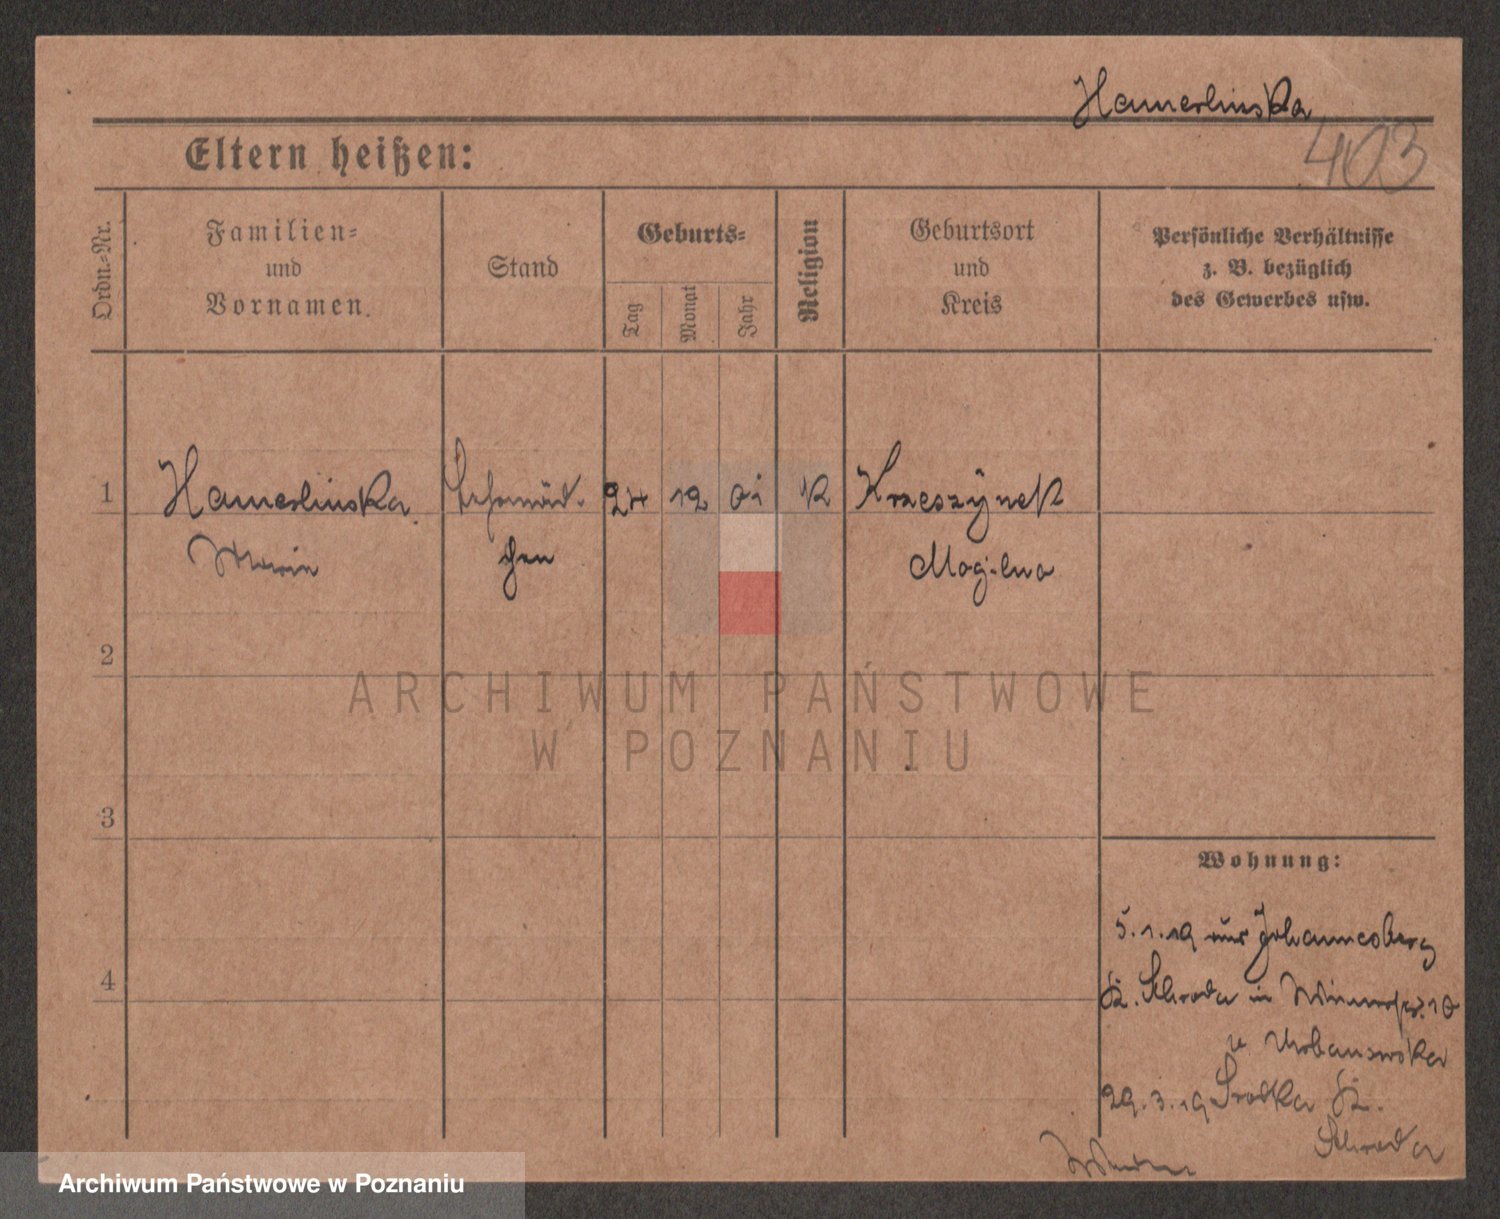 Hamerlinska
403
Eltern heißen:
Ordn.-Nr.
Familien-
und
Vornamen.
Stand
Geburts-
Tag
Monat
Jahr
Religion
Geburtsort
und
Kreis
Persönliche Verhältnisse
z. B. bezüglich
des Gewerbes usw.
1 Hamerlinska 24 12 01 K Krzeszynek
Mogilno
2
ARCHIWUM PAŃSTWOWE
W POZNANIU
3
Wohnung:
5.1.19 aus Johannesberg
Schroda in 10
4
Urbanowska
29.3.19 Srodka
Schroda
Archiwum Państwowe w Poznaniu